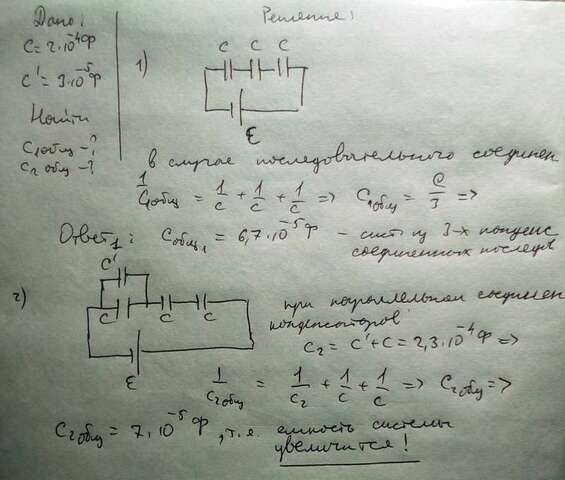 Дано:
C = 2·10⁻⁴Ф
C' = 3·10⁻⁵Ф
Найти
C1общ -?
C2 общ -?
Решение:
1)
C C C
ε
в случае последовательного соединен
1/C1общ = 1/C + 1/C + 1/C => C1общ = C/3 =>
Ответ1: Cобщ1 = 6,7·10⁻⁵Ф - сист из 3-х конденс
соединенных последов
2)
C'
C C C
ε
при параллельном соединен
конденсаторов
C2 = C' + C = 2,3·10⁻⁴Ф =>
1/C2общ = 1/C2 + 1/C + 1/C => C2общ =>
C2общ = 7·10⁻⁵Ф, т.е. емкость системы
увеличится!